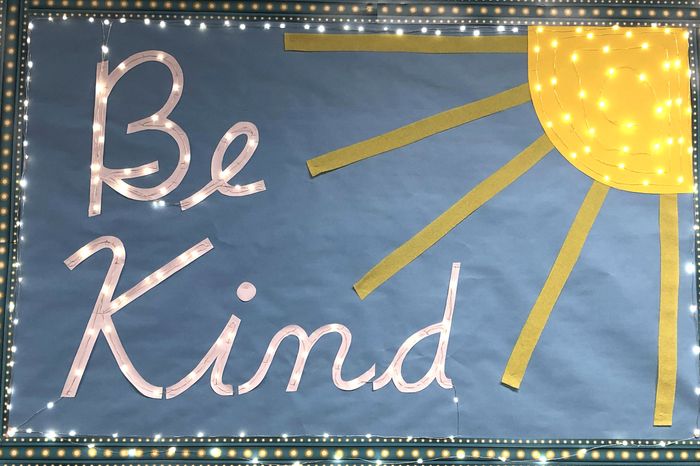 Be
Kind